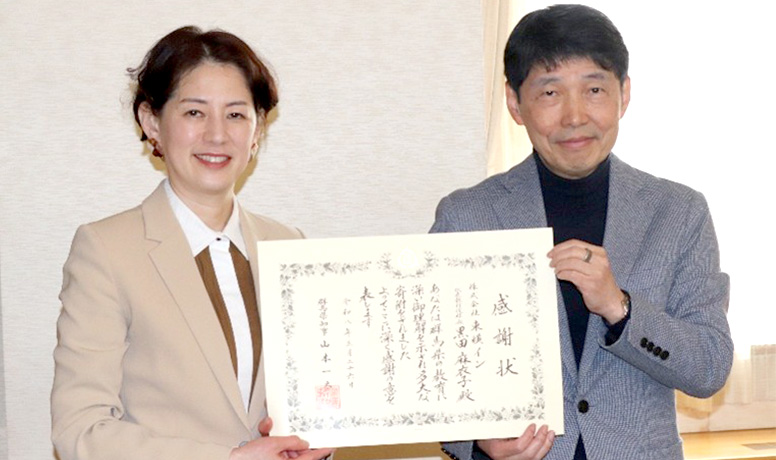 感謝状
株式会社東横イン
黒田麻衣子殿
あなたは群馬県の教育に
深い御理解を示され多大な
寄附をされました
よってここに深く感謝の意を
表します
令和
群馬県知事 山本一太